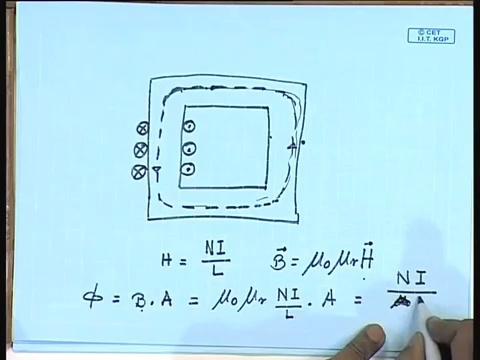 © CET
I.I.T. KGP
H = NI/L    B⃗ = μ₀μr H⃗
ϕ = B . A = μ₀μr NI/L . A = NI